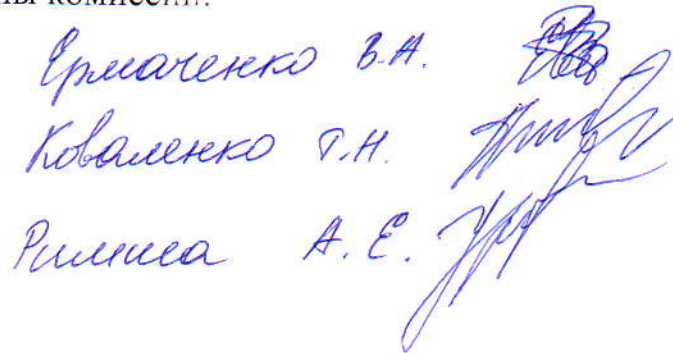 ны комиссии:
Ермаченко В.А.
Коваленко Т.Н.
А.Е.